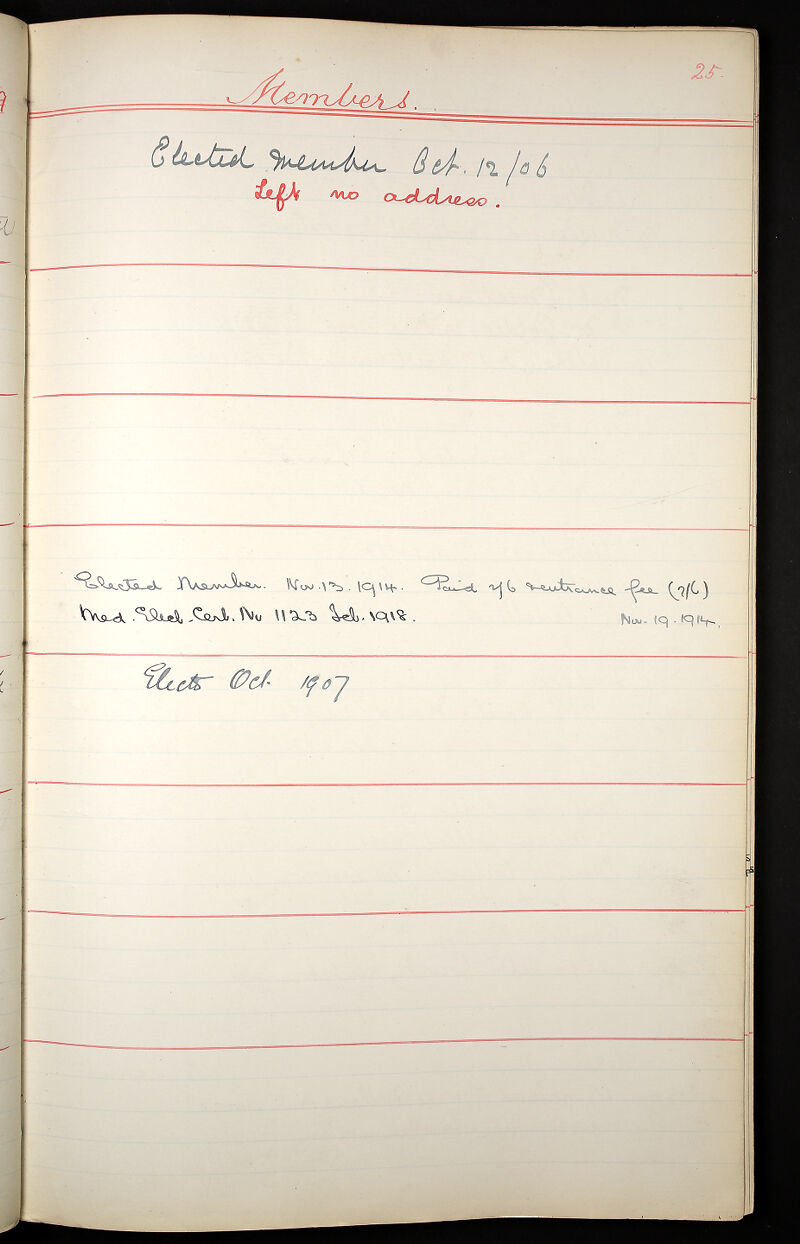 25.
Members.
Elected member Oct. 12/06
Left no address.
Elected Member. Nov. 13. 1914. Paid 2/6 entrance fee (2/6)
Med. Elect. Cert. No 1123 Feb. 1918. Nov. 19. 1914.
Elected Oct 1907